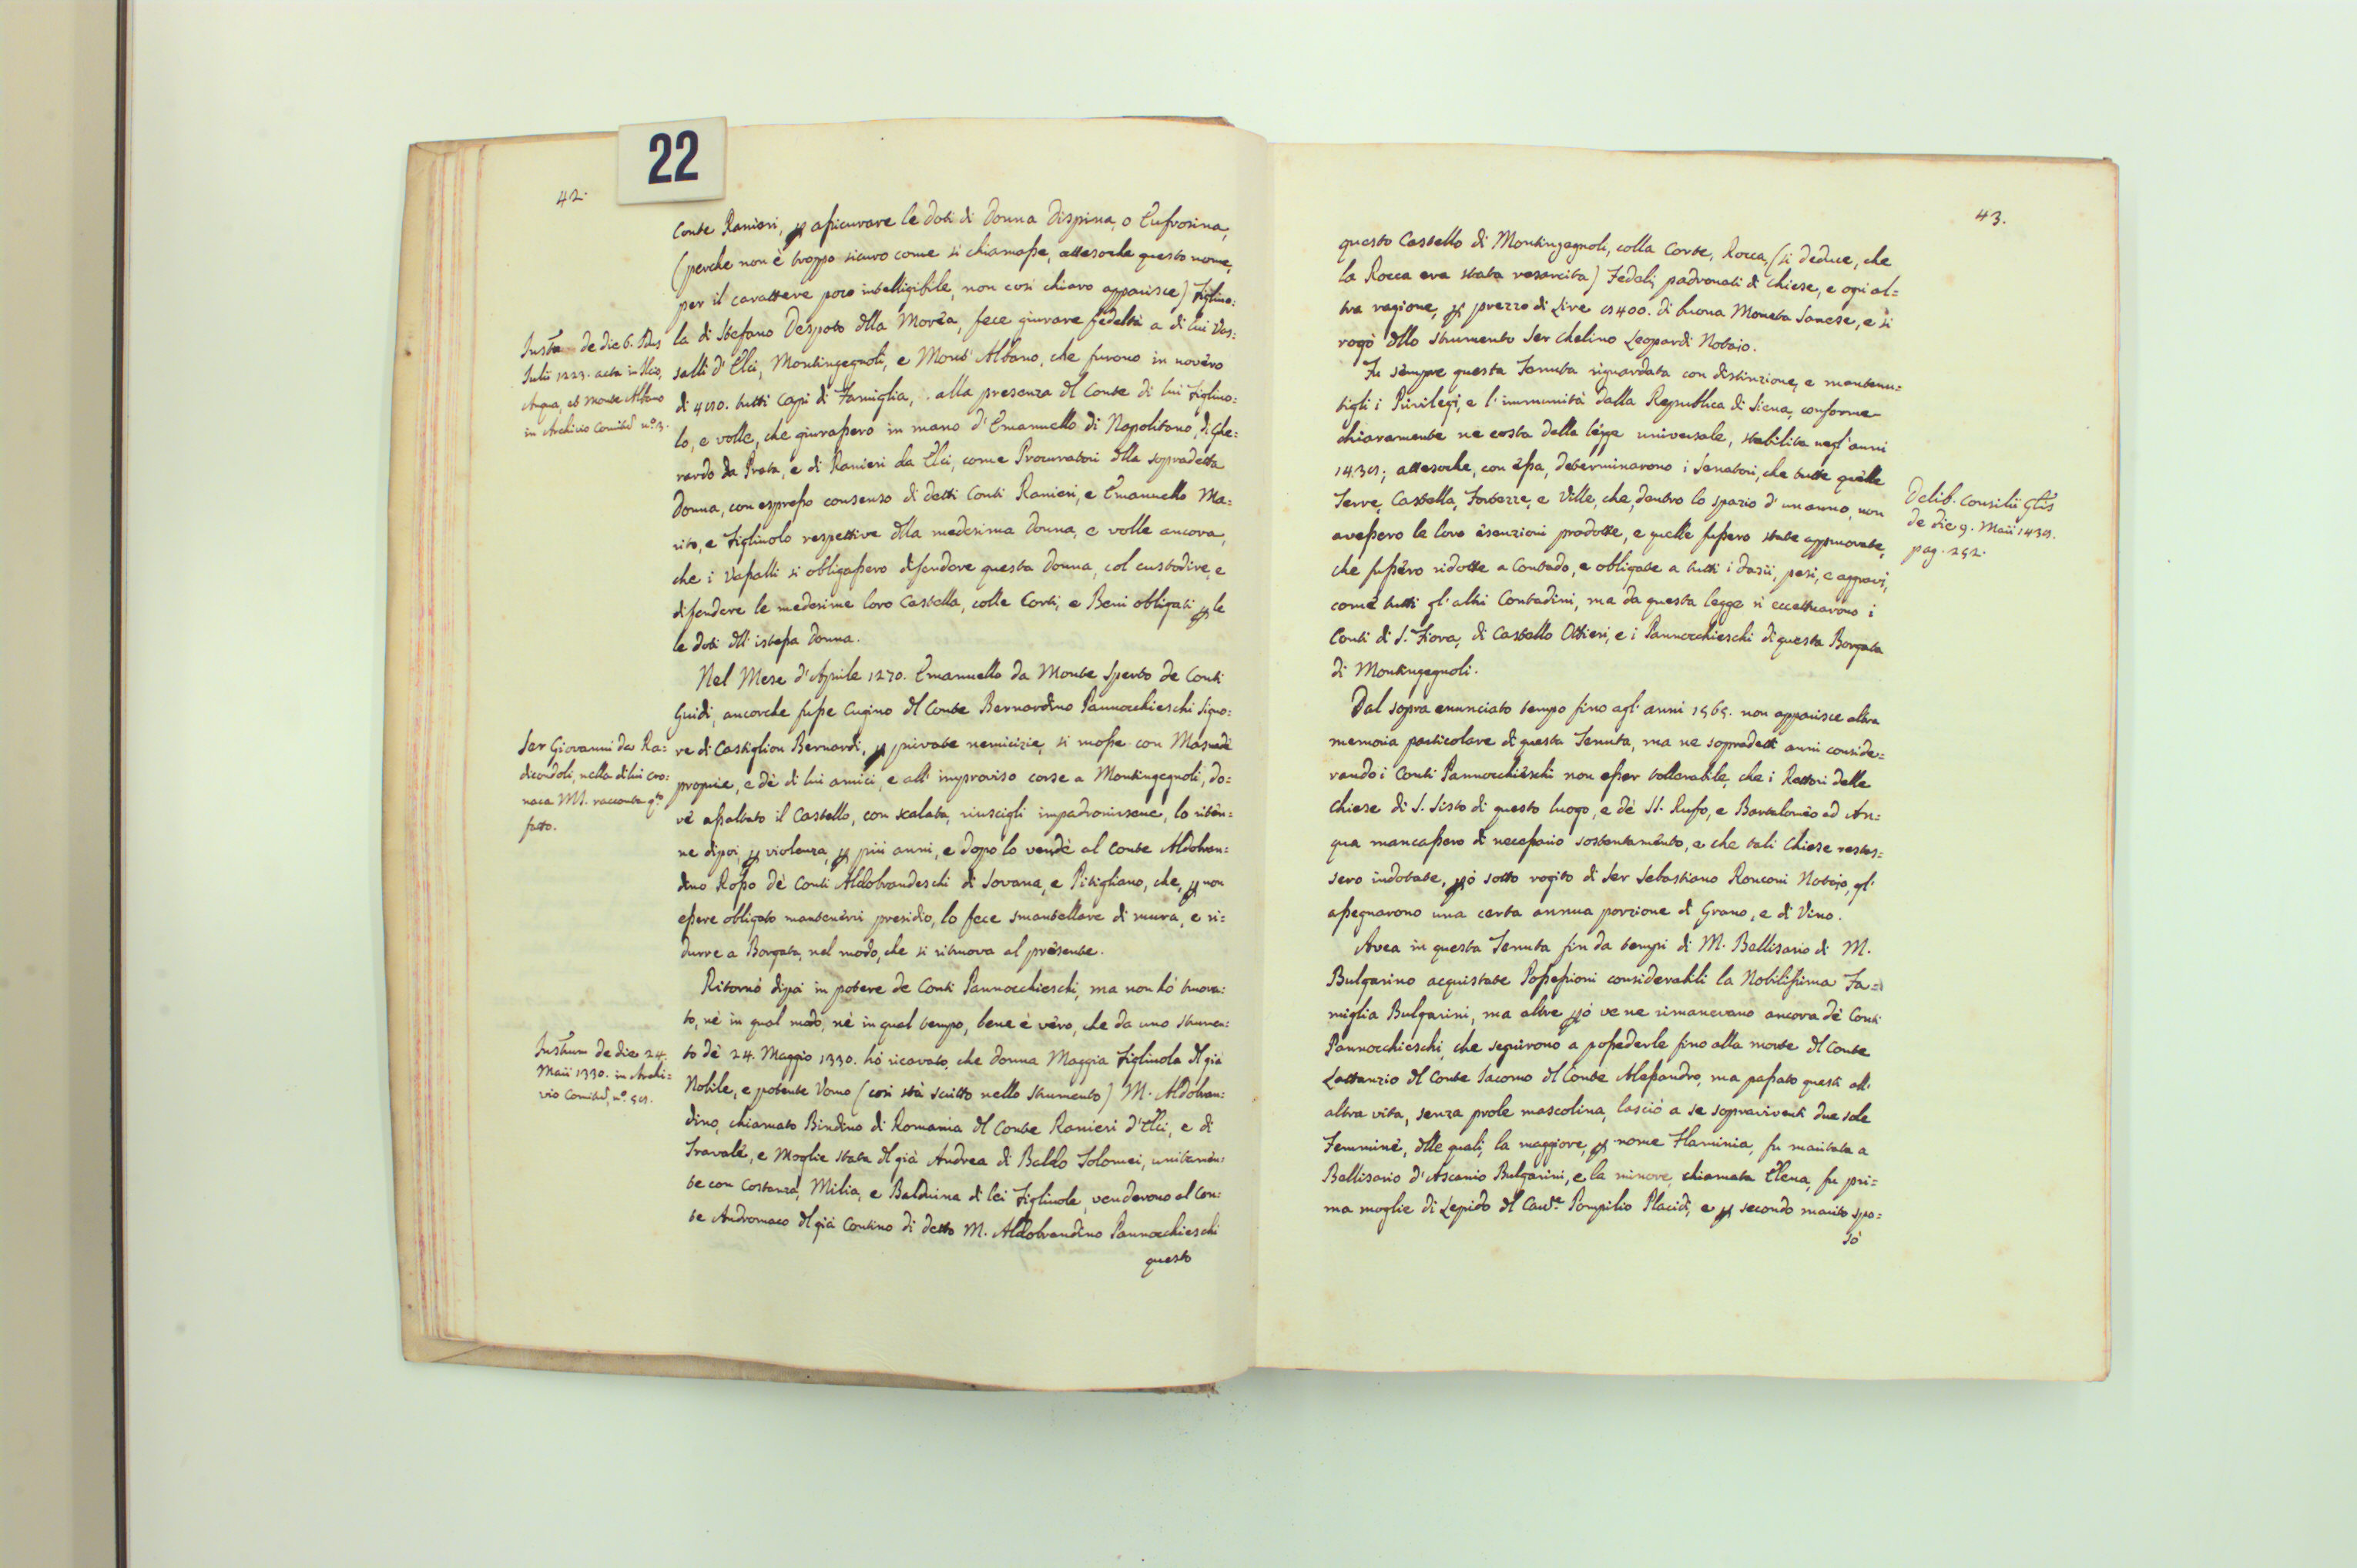 22
42.
Conte Ranieri, p assicurare le doti di Donna Dispina, o Eufrosina,
(perche non è troppo sicuro come si chiamasse, attesoche questo nome,
per il carattere poco intelligibile, non così chiaro apparisce) Figliuo=
la di Stefano Despoto dlla Morèa, fece giurare fedeltà a di lui Vas=
salli d'Elci, Montingegnoli, e Mont'Albano, che furono in novèro
di 450. tutti Capi di Famiglia, alla presenza dl Conte di lui Figliuo=
lo, e volle, che giurassero in mano d'Emanuello di Napolitano, di Ghe=
rardo da Prata, e di Ranieri da Elci, come Procuratori dlla sopradetta
Donna, con espresso consenso di detti Conti Ranieri, e Emanuello Ma=
rito, e Figliuolo respettive dlla medesima Donna, e volle ancora,
che i Vassalli si obligassero difendere questa Donna, col custodire, e
difendere le medesime loro Castella, colle Corti, e Beni obligati p le
le doti dll'istessa Donna.
Nel Mese d'Aprile 1270. Emanuello da Monte Sperto de Conti
Guidi, ancorche fusse Cugino dl Conte Bernardino Pannocchieschi Signo=
re di Castiglion Bernardi, p private nemicizie, si mosse con Masnade
proprie, e dè di lui amici, e all'improviso corse a Montingegnoli, do=
vè assaltato il Castello, con scalata, riuscigli impadronirsene, lo ritèn=
ne dipoi, p violenza, p più anni, e dopo lo vendè al Conte Aldobran=
dino Rosso dè Conti Aldobrandeschi di Sovana, e Pitigliano, che, p non
essere obligato mantenèrvi presidio, lo fece smantellare di mura, e ri=
durre a Borgata, nel modo, che si ritruova al presente.
Ritornò dipoi in potere de Conti Pannocchieschi, ma non hò truova=
to, nè in qual modo, nè in qual tempo, bene è vèro, che da uno strumen=
to dè 24. Maggio 1330. hò ricavato, che Donna Maggia Figliuola dl già
Nobile, e potente Uomo (così stà scritto nello strumento) M. Aldobran=
dino, chiamato Bindino di Romania dl Conte Ranieri d'Elci, e di
Travale, e Moglie stata dl già Andrea di Baldo Tolomei, unitamèn=
te con Costanza, Milia, e Balduina di lei Figliuole, venderono al Con=
te Andromaco dl già Contino di detto M. Aldobrandino Pannocchieschi
questo
de die 6.
Julii 1223. acta in Ilcio,
Anqua, et Monte Albano
in Archivio no. 3.
Ser Giovanni da Ra=
dicondoli, nella di lui Cro=
naca MS. racconta qto
fatto.
Instrum de die 24.
Maii 1330. in Archi=
vio no. 50.
43.
questo Castello di Montingegnoli, colla Corte, Rocca, (si deduce, che
la Rocca era stata resarcita) Fedeli, padronati di Chiese, e ogni al=
tra ragione, p prezzo di Lire 5400. di buona Moneta Sanese, e si
rogò dllo strumento Ser Chelino Leopardi Notaio.
Fu sempre questa Tenuta riguardata con distinzione, e mantenu=
tigli i Privilegi, e l'immunità dalla Republica di Siena, conforme
chiaramente ne costa dalla légge universale, stabilita negl'anni
1435; attesoche, con èssa, determinarono i Senatori, che tutte quèlle
Terre, Castella, Fortezze, e Ville, che, dentro lo spazio d'un anno, non
avessero le loro èsenzioni prodotte, e quelle fussero state approvate,
che fussèro ridotte a Contado, e obligate a tutti i dazii, pesi, e aggravi,
come tutti gl'altri Contadini, ma da questa legge si eccettuarono i
Conti di S. Fiora, di Castello Ottieri, e i Pannocchieschi di questa Borgata
di Montingegnoli.
Dal sopra enunciato tempo fino agl'anni 1565. non apparisce altra
memoria particolare di questa Tenuta, ma ne sopradetti anni conside=
rando i Conti Pannocchièschi non esser tollerabile, che i Rettori delle
Chiese di S. Sisto di questo luogo, e dè SS. Rufo, e Bartolomèo ad An=
qua mancassero di necessario sostentamènto, e che tali Chiese restas=
sero indotate, pò sotto rogito di Ser Sebastiano Ronconi Notaio, gl'
assegnarono una certa annua porzione di Grano, e di Vino.
Avea in questa Tenuta fin da tempi di M. Bellisario di M.
Bulgarino acquistate Possessioni considerabili la Nobilissima Fa=
miglia Bulgarini, ma altre pò ve ne rimanevano ancora dè Conti
Pannocchieschi, che seguirono a possederle fino alla morte dl Conte
Lattanzio dl Conte Iacomo dl Conte Alessandro, ma passato questi all'
altra vita, senza prole mascolina, lasciò a se sopraviventi due sole
Femmine, dlle quali, la maggiore, p nome Flaminia, fu maritata a
Bellisario d'Ascanio Bulgarini, e la minore, chiamata Elena, fu pri=
ma moglie di Lepido dl Cavre Pompilio Placidi, e p secondo marito spo=
sò
Delib. Consilii Glis
de die 9. Maii 1435.
pag. 252.